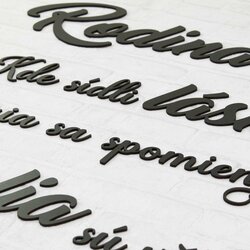 Rodina
Kde sídli lás
ia sa spomien
lia sú